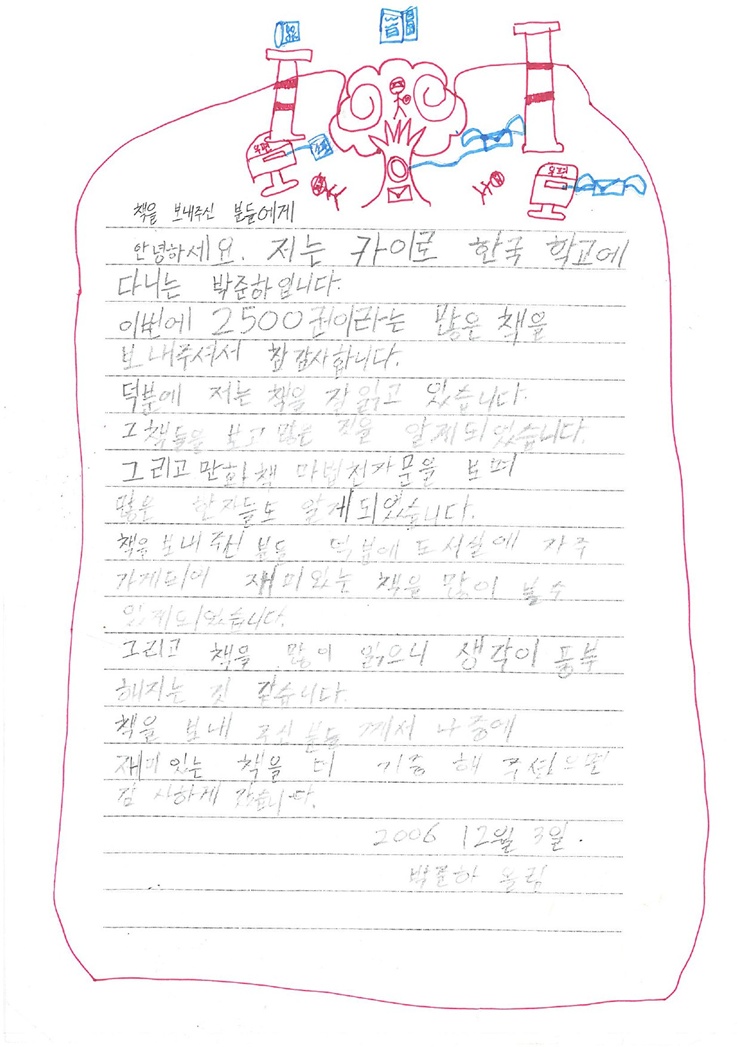 우편
소포
우편
책을 보내주신 분들에게
안녕하세요. 저는 카이로 한국 학교에
다니는 박준하입니다.
이번에 2500권이라는 많은 책을
보내주셔서 참 감사합니다.
덕분에 저는 책을 잘 읽고 있습니다.
그 책들을 보고 많은 것을 알게되었습니다.
그리고 만화책 마법천자문을 보며
많은 한자들도 알게되었습니다.
책을 보내 주신 분들 덕분에 도서실에 자주
가게되어 재미있는 책을 많이 볼 수
있게되었습니다.
그리고 책을 많이 읽으니 생각이 풍부
해지는 것 같습니다.
책을 보내 주신 분들 께서 나중에
재미 있는 책을 더 기증 해 주셨으면
감사하게 갔습니다.
2006 12월 3일.
박준하 올림